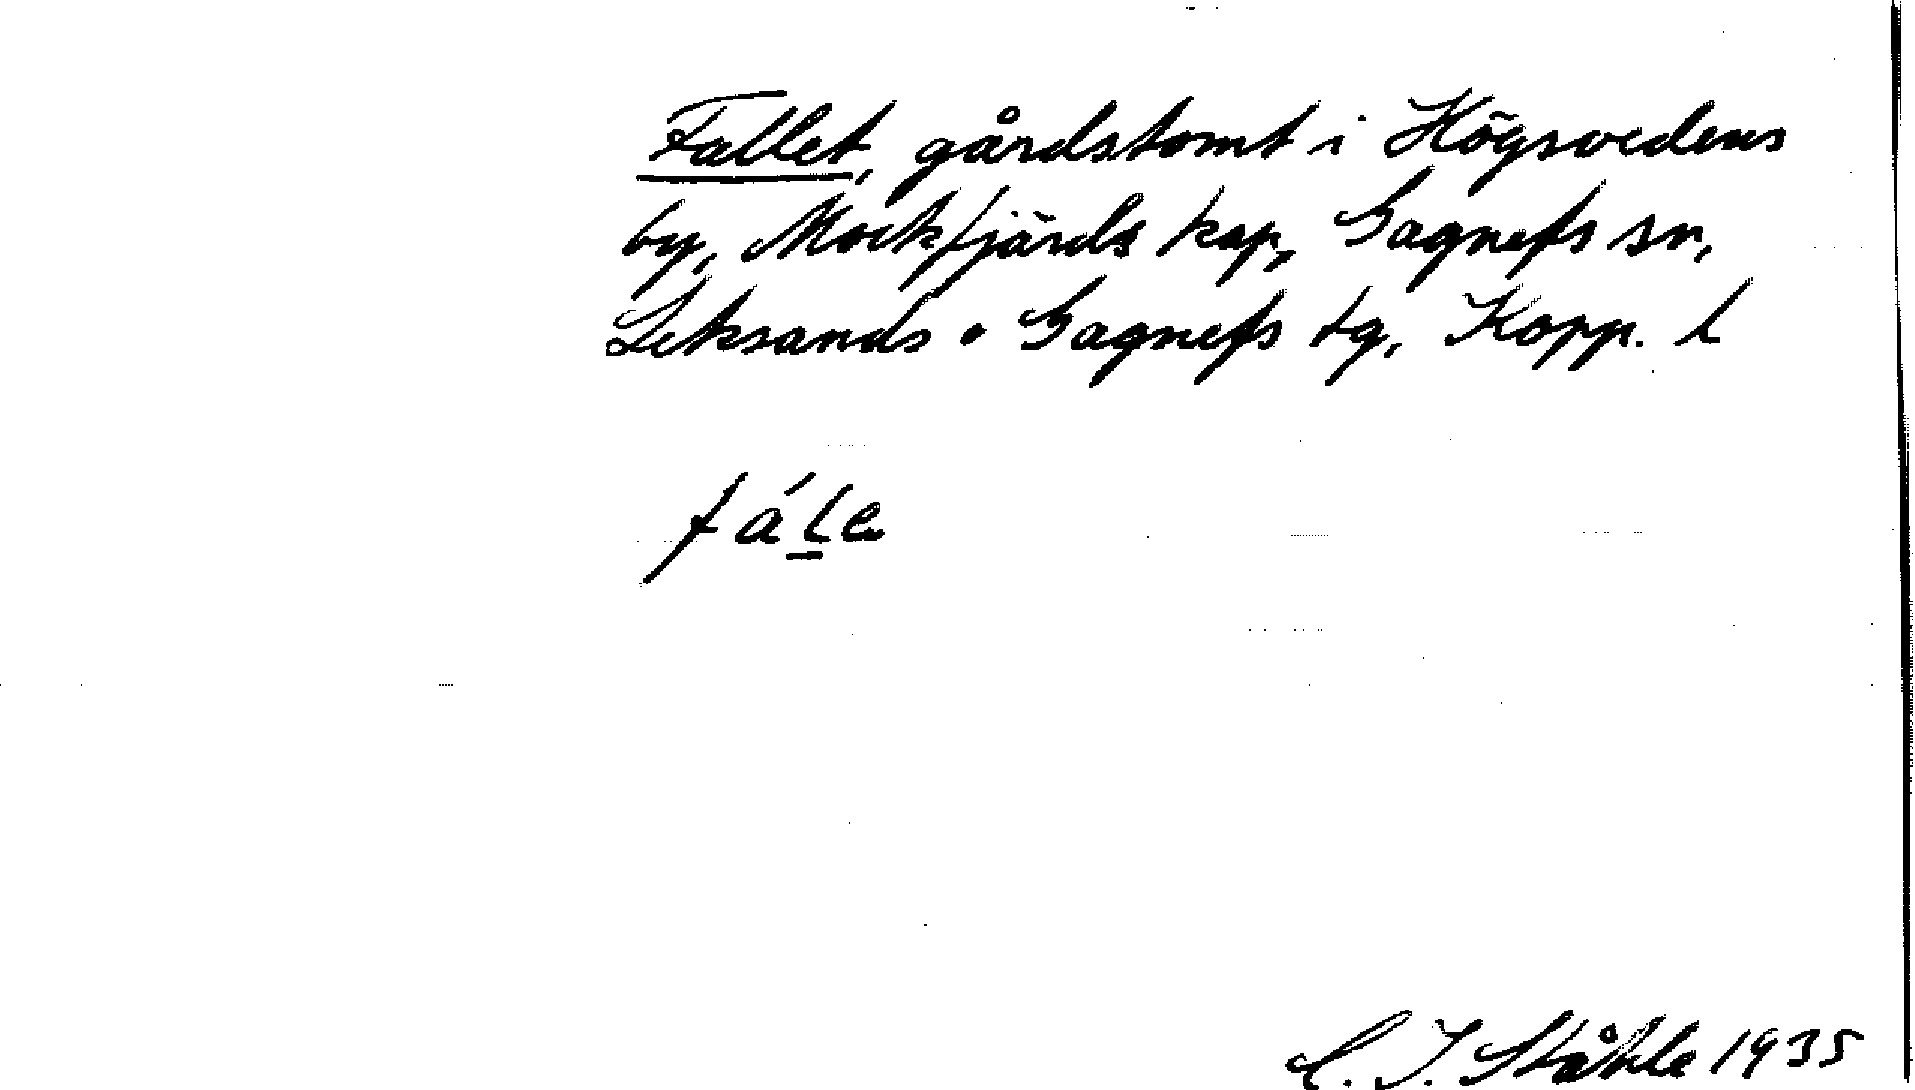 Fallet, gårdstomt i Högsvedens
by, Mockfjärds kap, Gagnefs sn,
Leksands o Gagnefs tg, Kopp. l
fáḻe
C. I. Ståhle 1935